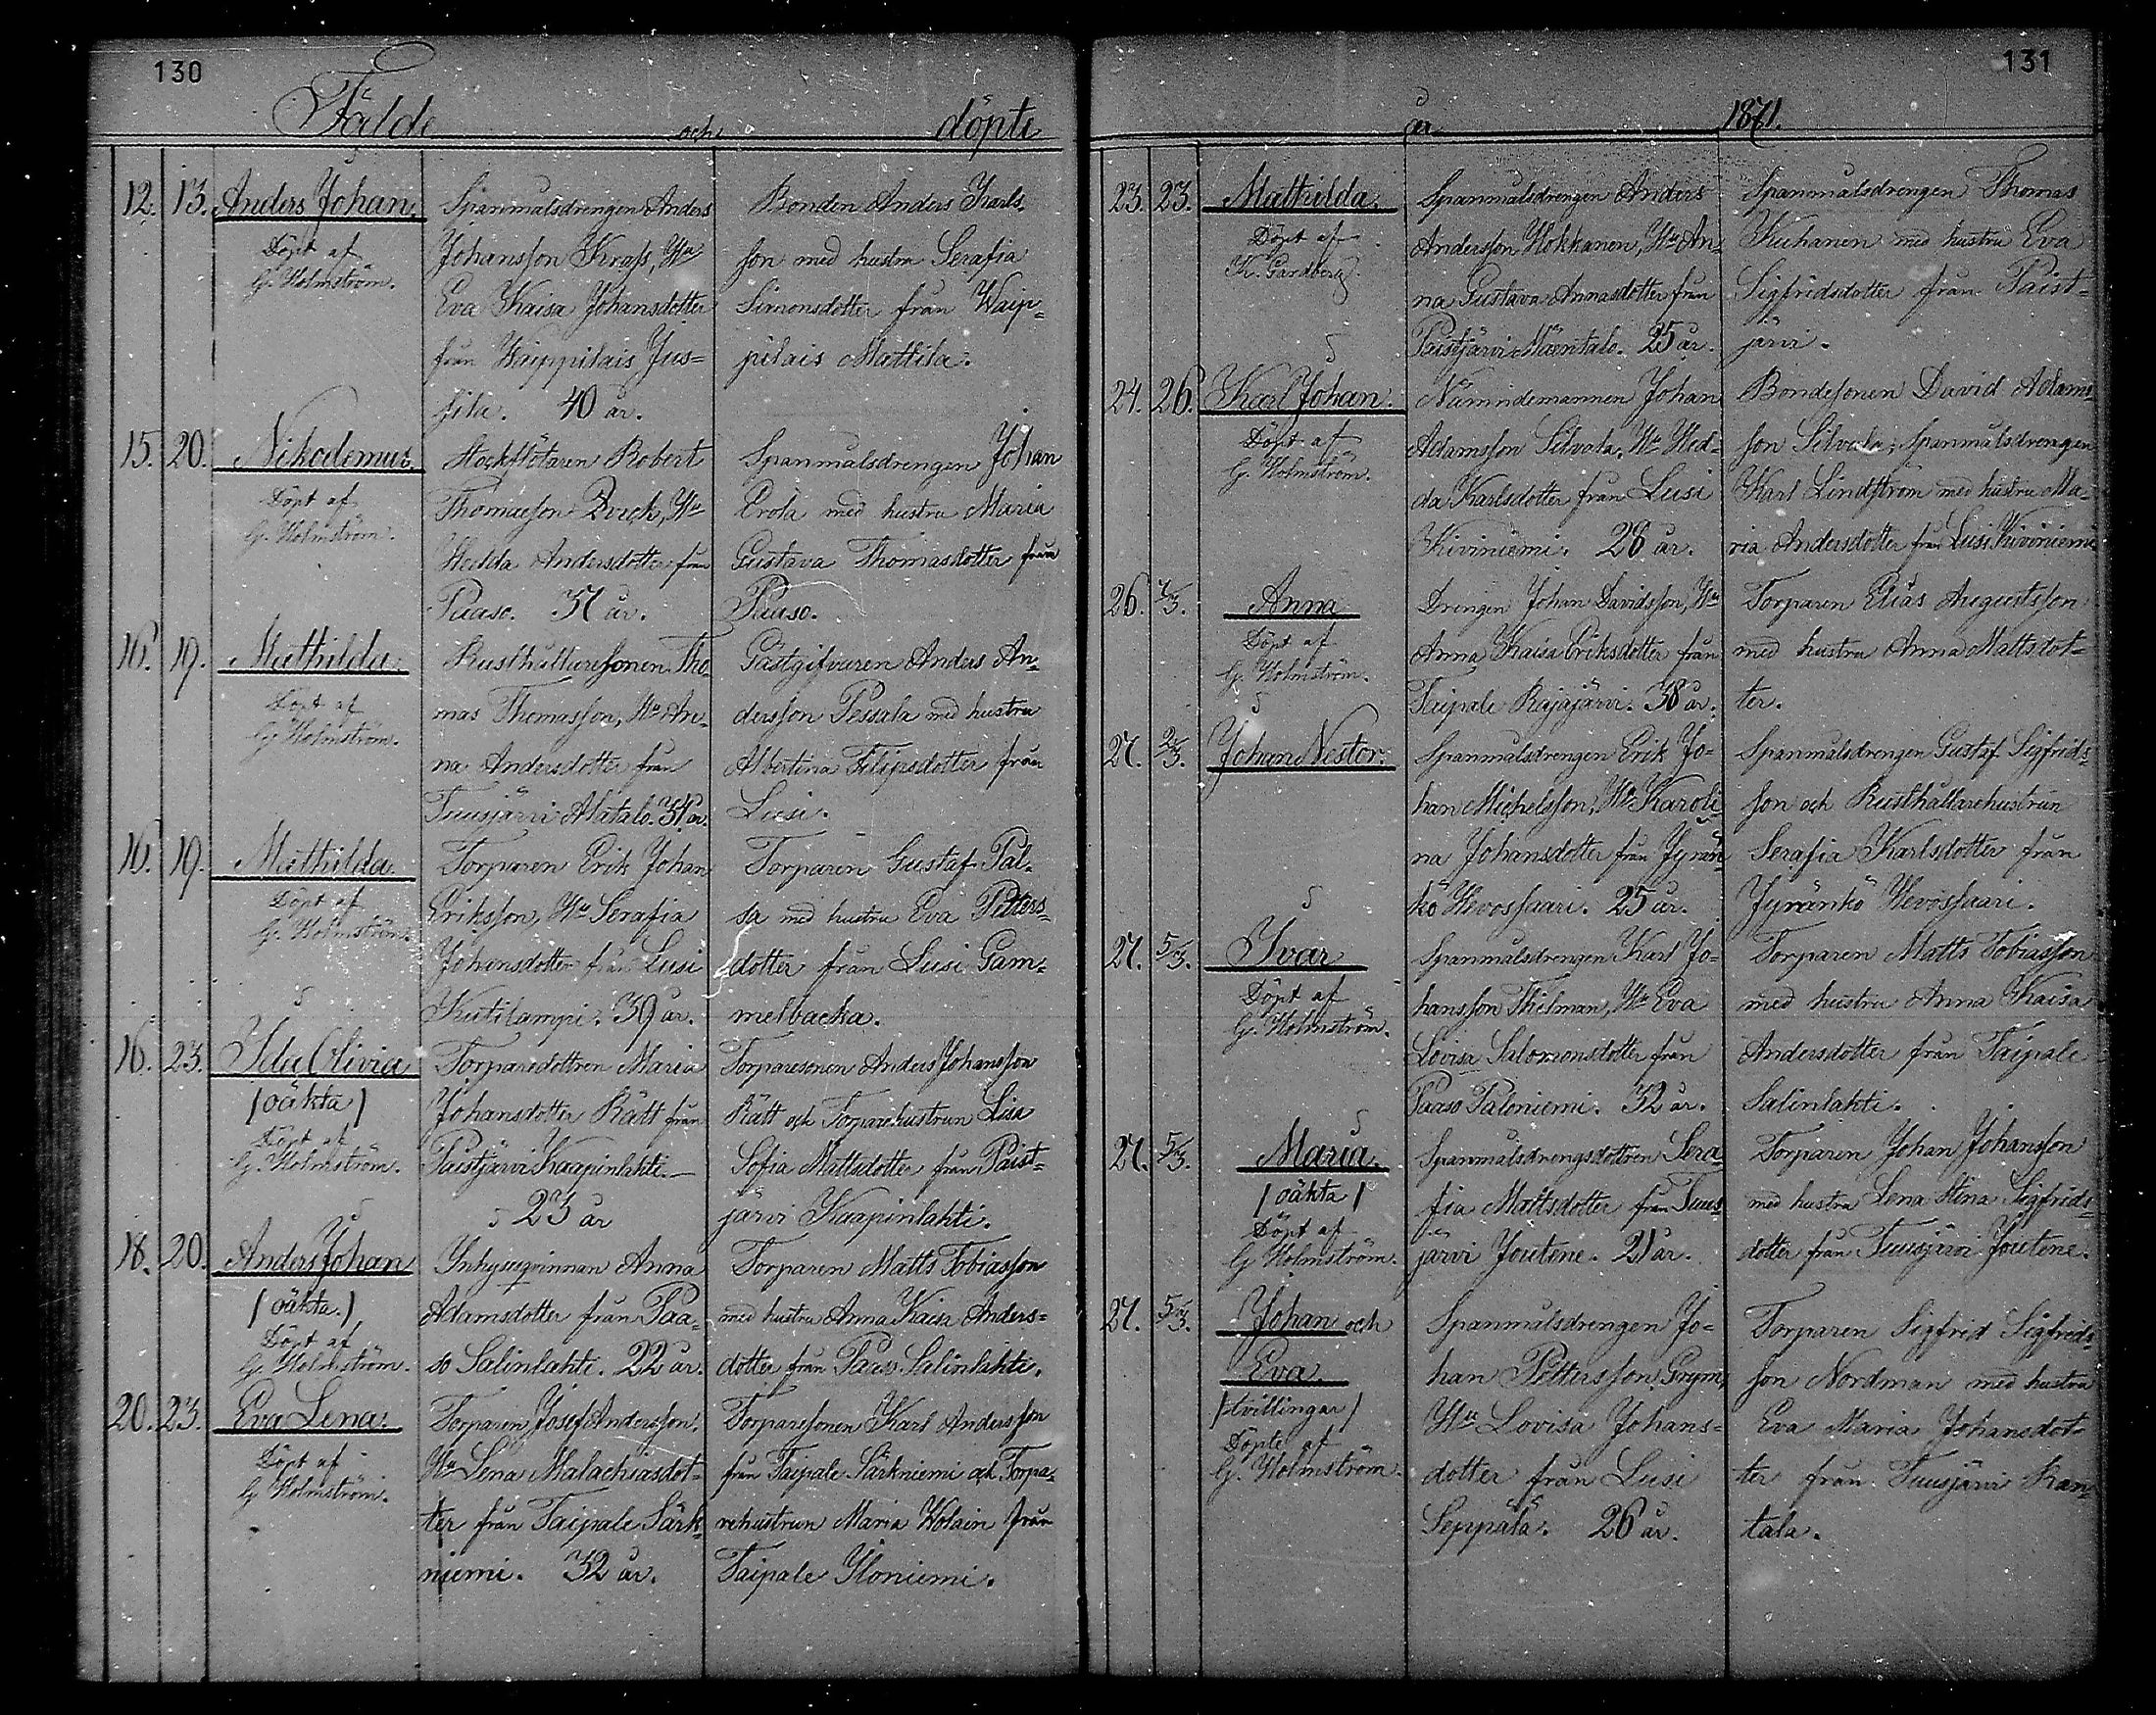 130
Födde och döpte
12. 13. Anders Johan.
Döpt af
G. Holmström.
Spanmålsdrengen Anders
Johansson Krass, Hu
Eva Kaisa Johansdotter
från Waippilais Jus=
sila. 40 år.
Bonden Anders Karls
son med hustru Serafia
Simonsdotter från Waip=
pilais Mattila.
15. 20. Nikodemus.
Döpt af
G. Holmström.
Stockflötaren Robert
Thomasson Hu
Hedda Andersdotter från
Paaso. 37 år.
Spanmålsdrengen Johan
Erola med hustru Maria
Gustava Thomasdotter från
Paaso.
16. 19. Mathilda.
Döpt af
G. Holmström.
Rusthållaresonen Tho=
mas Thomasson, Hu An=
na Andersdotter från
Tuusjärvi Alatalo. år.
Gästgifvaren Anders An=
dersson Pessala med hustru
Albertina Filipsdotter från
Lusi.
16. 19. Mathilda.
Döpt af
G. Holmström.
Torparen Erik Johan
Eriksson, Hu Serafia
Johansdotter från Lusi
Kutilampi. 39 år.
Torparen Gustaf Pal=
sa med hustru Eva Petters=
dotter från Lusi Gam=
melbacka.
16. 23. Ida Olivia
/oäkta/
Döpt af
G. Holmström.
Torparedottren Maria
Johansdotter Rätt från
Paistjärvi Kaapinlahti.
23 år
Torparesonen Anders Johansson
Rätt och Torparehustrun Lisa
Sofia Mattsdotter från Paist=
järvi Kaapinlahti.
18. 20. Anders Johan
/oäkta./
Döpt af
G. Holmström.
Inhysesqvinnan Anna
Adamsdotter från Paa=
so Salinlahti. 22 år.
Torparen Matts Tobiasson
med hustru Anna Kaisa Anders=
dotter från Paaso Salinlahti.
20. 23. Eva Lena.
Döpt af
G Holmström.
Torparen Josef Andersson,
Hu Lena Malachiasdot=
ter från Taipale Särk=
niemi. 32 år.
Torparesonen Karl Andersson
från Taipale Särkniemi och Torpa=
rehustrun Maria från
Taipale Iloniemi.
131
år 1871.
23. 23. Mathilda.
Döpt af
K. Gardberg.
Spanmålsdrengen Anders
Andersson Hokkanen, Hu An=
na Gustava Annasdotter från
Paistjärvi Mäentalo. 25 år.
Spanmålsdrengen Thomas
Kuhanen med hustru Eva
Sigfridsdotter från Paist=
järvi.
24. 26. Karl Johan.
Döpt af
G. Holmström.
Nämndemannen Johan
Adamsson Silvola, Hu Hed=
da Karlsdotter från Lusi
Kiviniemi. 28 år.
Bondesonen David Adams=
son Silvola, Spanmålsdrengen
Karl Lindström med hustru Ma=
ria Andersdotter från Lusi Kiviniemi
26. Anna
Döpt af
G. Holmström.
Drengen Johan Davidsson, Hu
Anna Kaisa Eriksdotter från
Taipale Rajajärvi. 38 år.
Torparen Elias Augustsson
med hustru Anna Mattsdot=
ter.
27. Johan Nestor.
Spanmålsdrengen Erik Jo=
han Michelsson, Hu Karoli
na Johansdotter från Jyrän
kö Hevossaari. 25 år.
Spanmålsdrengen Gustaf Sigfrids=
son och Rusthållarehustrun
Serafia Karlsdotter från
Jyränkö Hevossaari.
27. 5/3. Ivar
Döpt af
G. Holmström.
Spanmålsdrengen Karl Jo=
hansson Thilman, Hu Eva
Lovisa Salomonsdotter från
Paaso Paloniemi. 32 år.
Torparen Matts Tobiasson
med hustru Anna Kaisa
Andersdotter från Taipale
Salinlahti.
27. 5/3. Maria.
/oäkta/
Döpt af
G Holmström.
Spanmålsdrengsdottren Sera=
fia Mattsdotter från Tuus
järvi Joutene. 21 år.
Torparen Johan Johansson
med hustru Lena Stina Sigfrids=
dotter från Tuusjärvi Joutene.
27. 5/3. Johan och
Eva.
/tvillingar/
Döpte af
G. Holmström.
Spanmålsdrengen Jo=
han Pettersson Grym,
Hu Lovisa Johans=
dotter från Lusi
Seppälä. 26 år.
Torparen Sigfrid Sigfrids=
son Nordman med hustru
Eva Maria Johansdot=
ter från Tuusjärvi Ran=
tala.